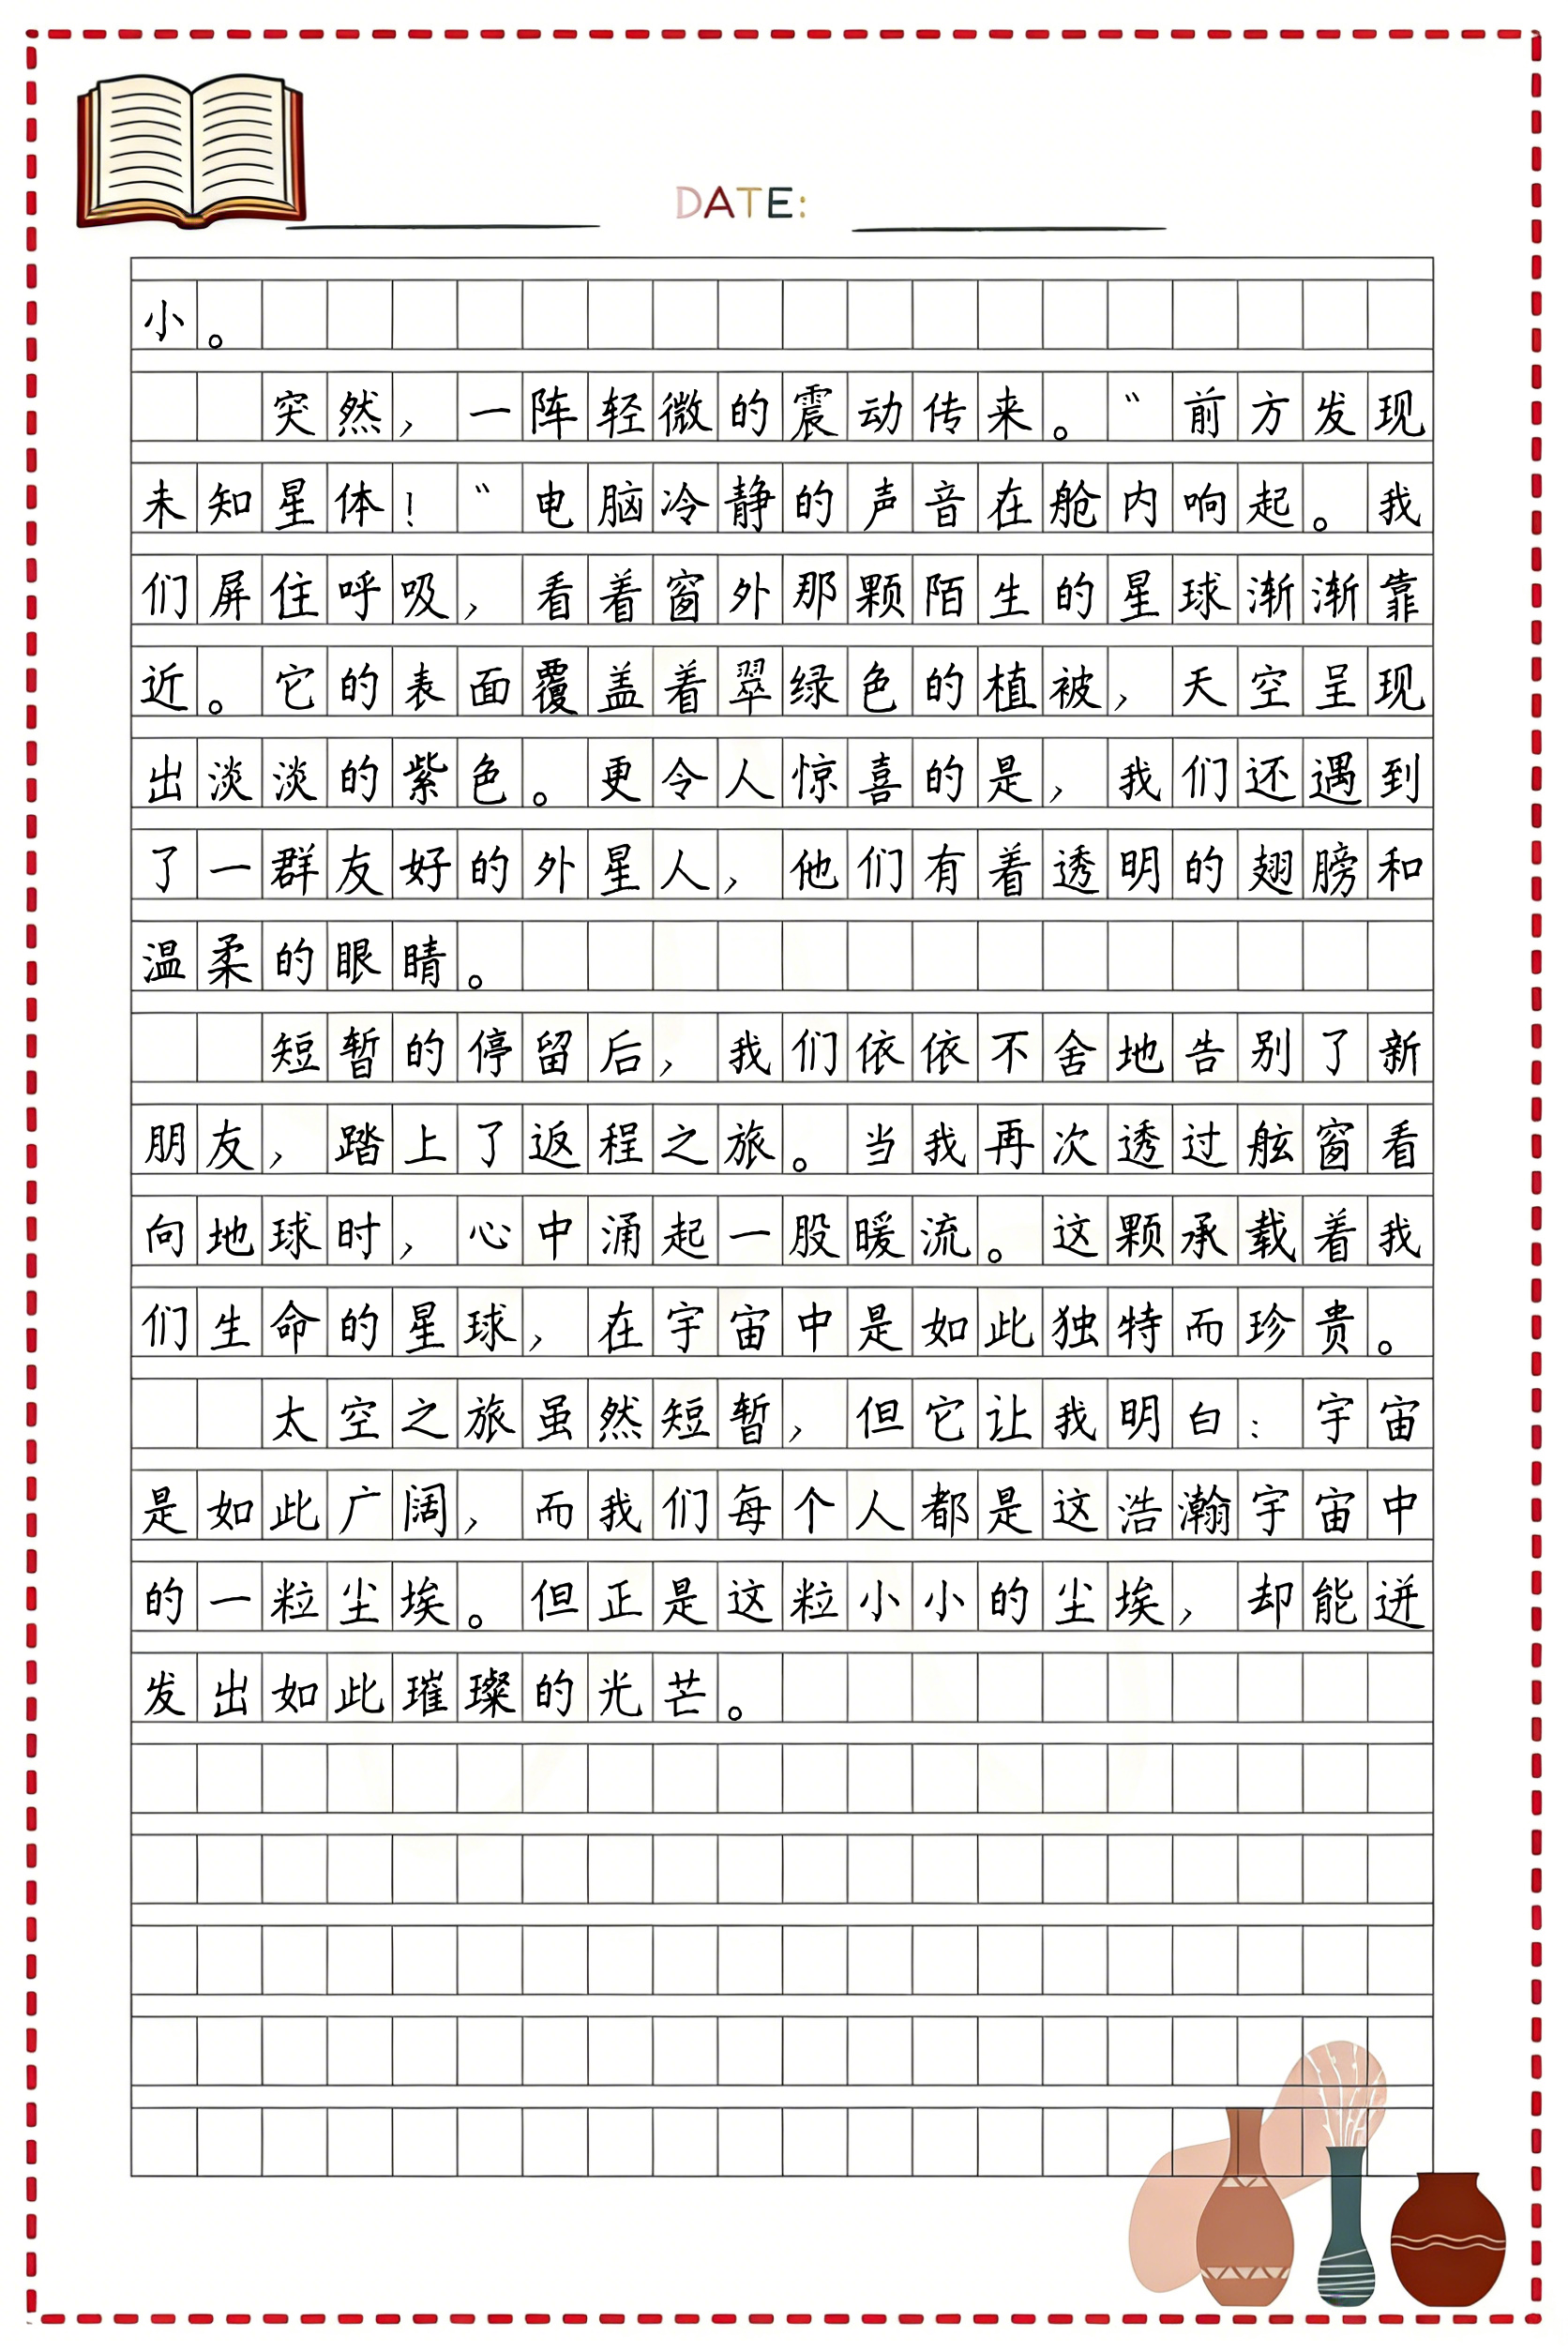 DATE:
小。
突然，一阵轻微的震动传来。“前方发现
未知星体！”电脑冷静的声音在舱内响起。我
们屏住呼吸，看着窗外那颗陌生的星球渐渐靠
近。它的表面覆盖着翠绿色的植被，天空呈现
出淡淡的紫色。更令人惊喜的是，我们还遇到
了一群友好的外星人，他们有着透明的翅膀和
温柔的眼睛。
短暂的停留后，我们依依不舍地告别了新
朋友，踏上了返程之旅。当我再次透过舷窗看
向地球时，心中涌起一股暖流。这颗承载着我
们生命的星球，在宇宙中是如此独特而珍贵。
太空之旅虽然短暂，但它让我明白：宇宙
是如此广阔，而我们每个人都是这浩瀚宇宙中
的一粒尘埃。但正是这粒小小的尘埃，却能迸
发出如此璀璨的光芒。